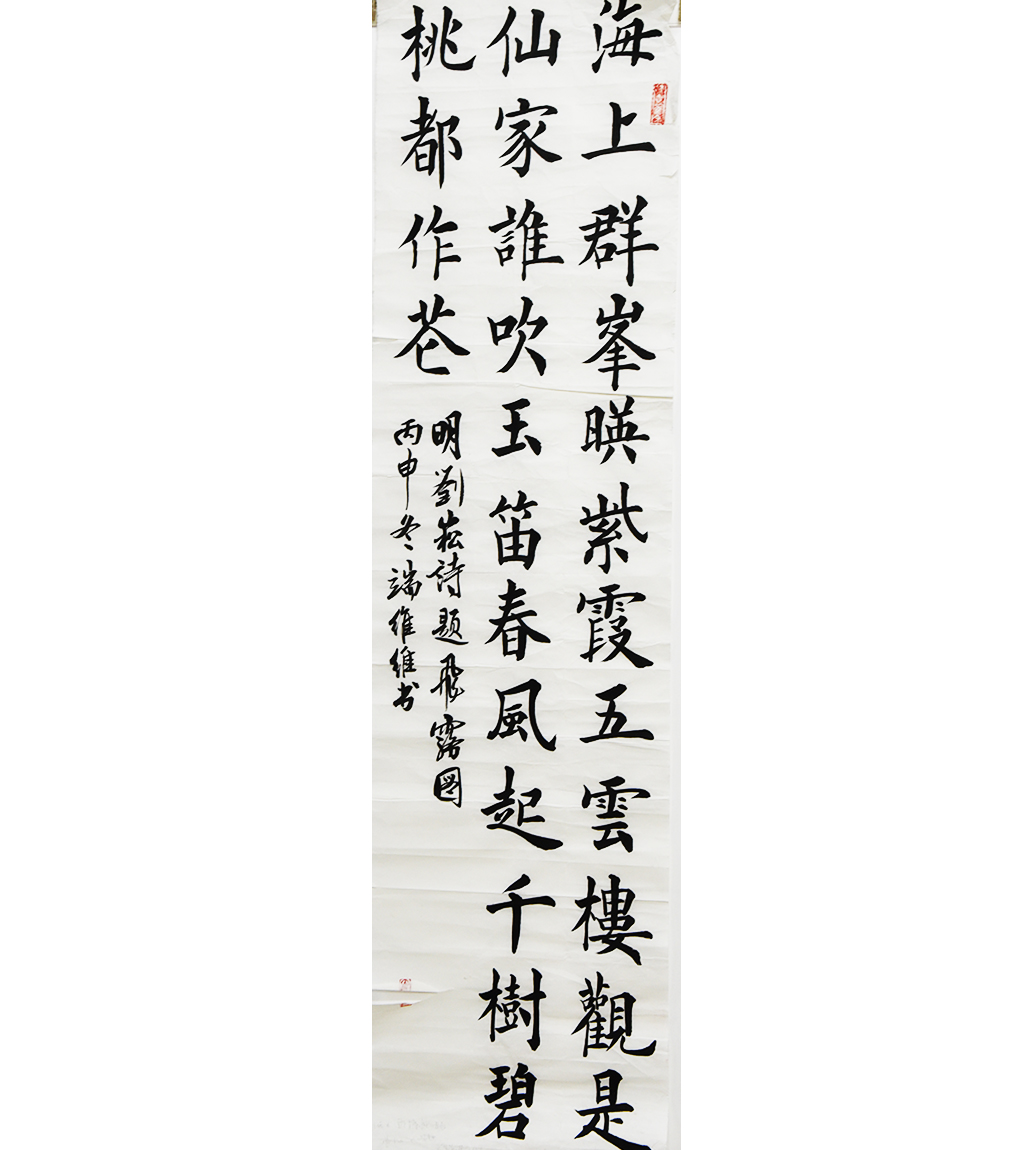 海上群峯暎紫霞五雲樓觀是
仙家誰吹玉笛春風起千樹碧
桃都作苍
明劉崧詩題飛霧图
丙申冬端維維书